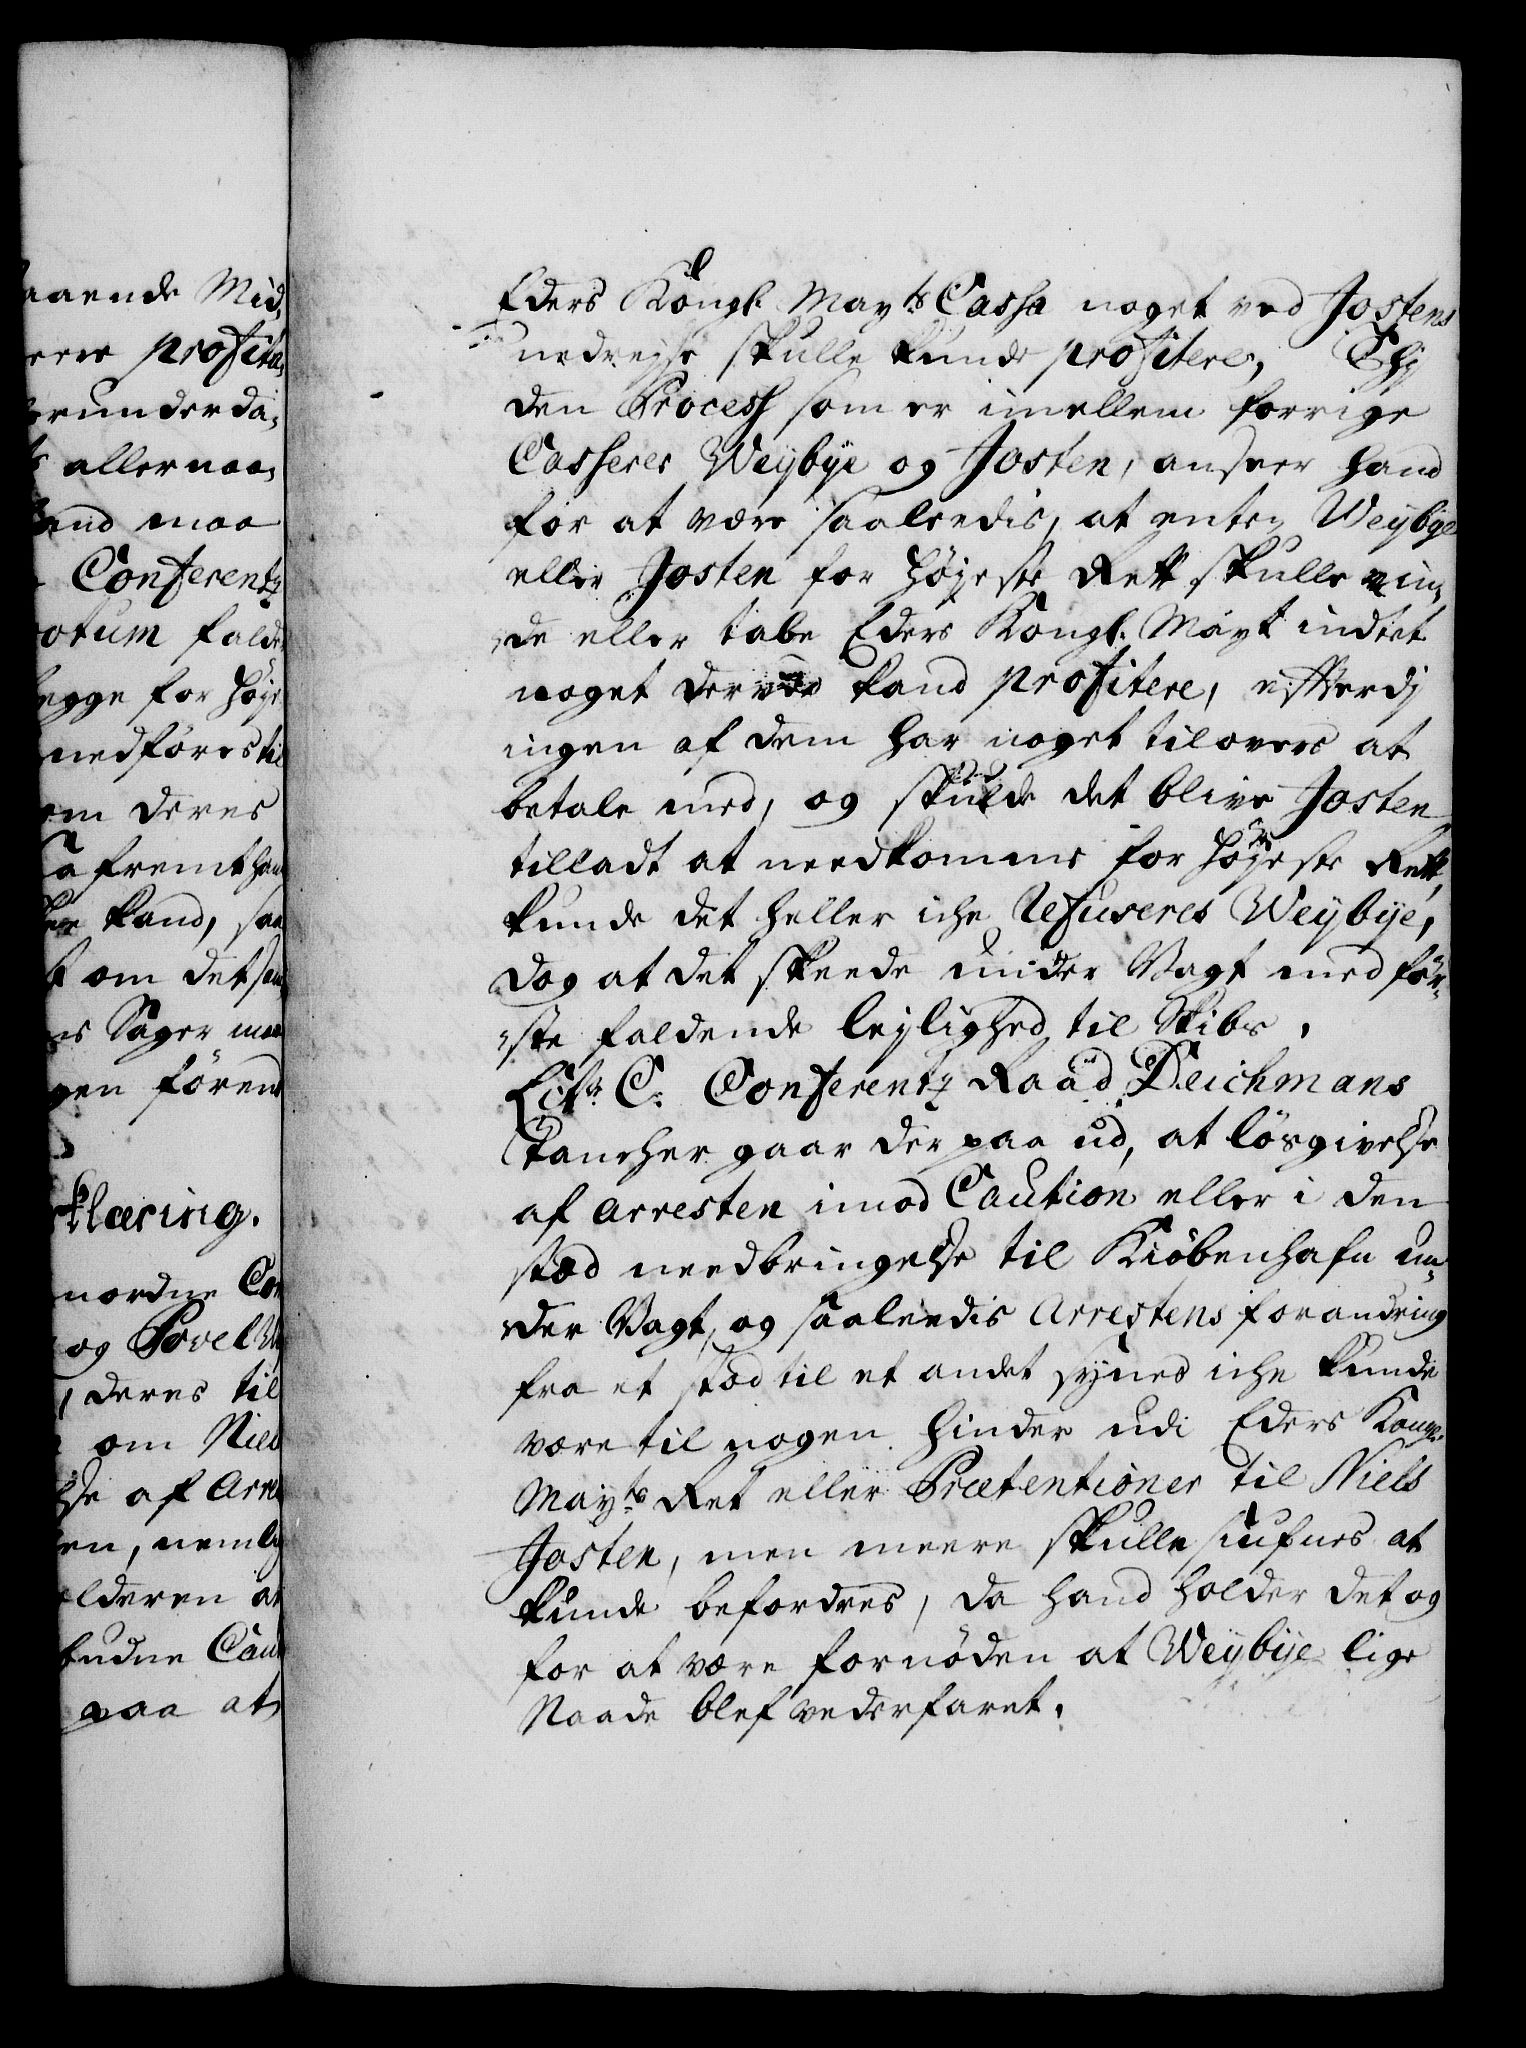 aaende Mid,
profite,
erunderda,
allernaa,
maa
Conferentz
otum falde
egge for høje
nedføres til
om deres
kand, saa
om det sam
Sager maa
gen førend
klæring.
nordne Con
og Povel We
deres til
om Niels
lse af Arre
en, nemlig
olderen at
budne Cau
paa at
Eders Kongl. Mayts Cassa noget ved Jostens
nedreyse skulle kunde profitere, Thj
den Process som er imellem forrige
Casserer Weybye og Josten, anseer hand
for at være saaleedis, at enten Weybye
eller Josten for Højeste Rett skulle vin,
,de eller tabe Eders Kongl. Mayt indtet
noget derved kand profitere, efterdj
ingen af dem har noget tilovers at
betale med, og skulde det blive Josten
tilladt at needkomme for Højeste Rett,
kunde det heller iche Refuseres Weybye,
dog at det skeede under Vagt med før,
,ste faldende lejlighed til Skibs.
Litr. C. Conferentz Raad Deichmans
Tancher gaar der paa ud, at løsgivelse
af Arresten imod Caution eller i den
stæd needbringelse til Kiøbenhafn un,
der Vagt, og saaleedis Arrestens forandring
fra et stæd til et andet synes iche kunde
være til nogen hinder udi Eders Kongl.
Mayts Ret eller Prætentioner til Niels
Josten, men meere skulle siufnes at
kunde befordres, da hand holder det og
for at være fornøden at Weybye lige
Naade blef vederfaret.